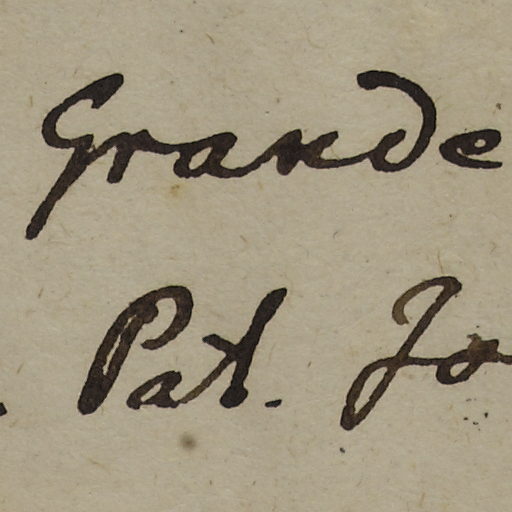 Grande
. Pat. Jo